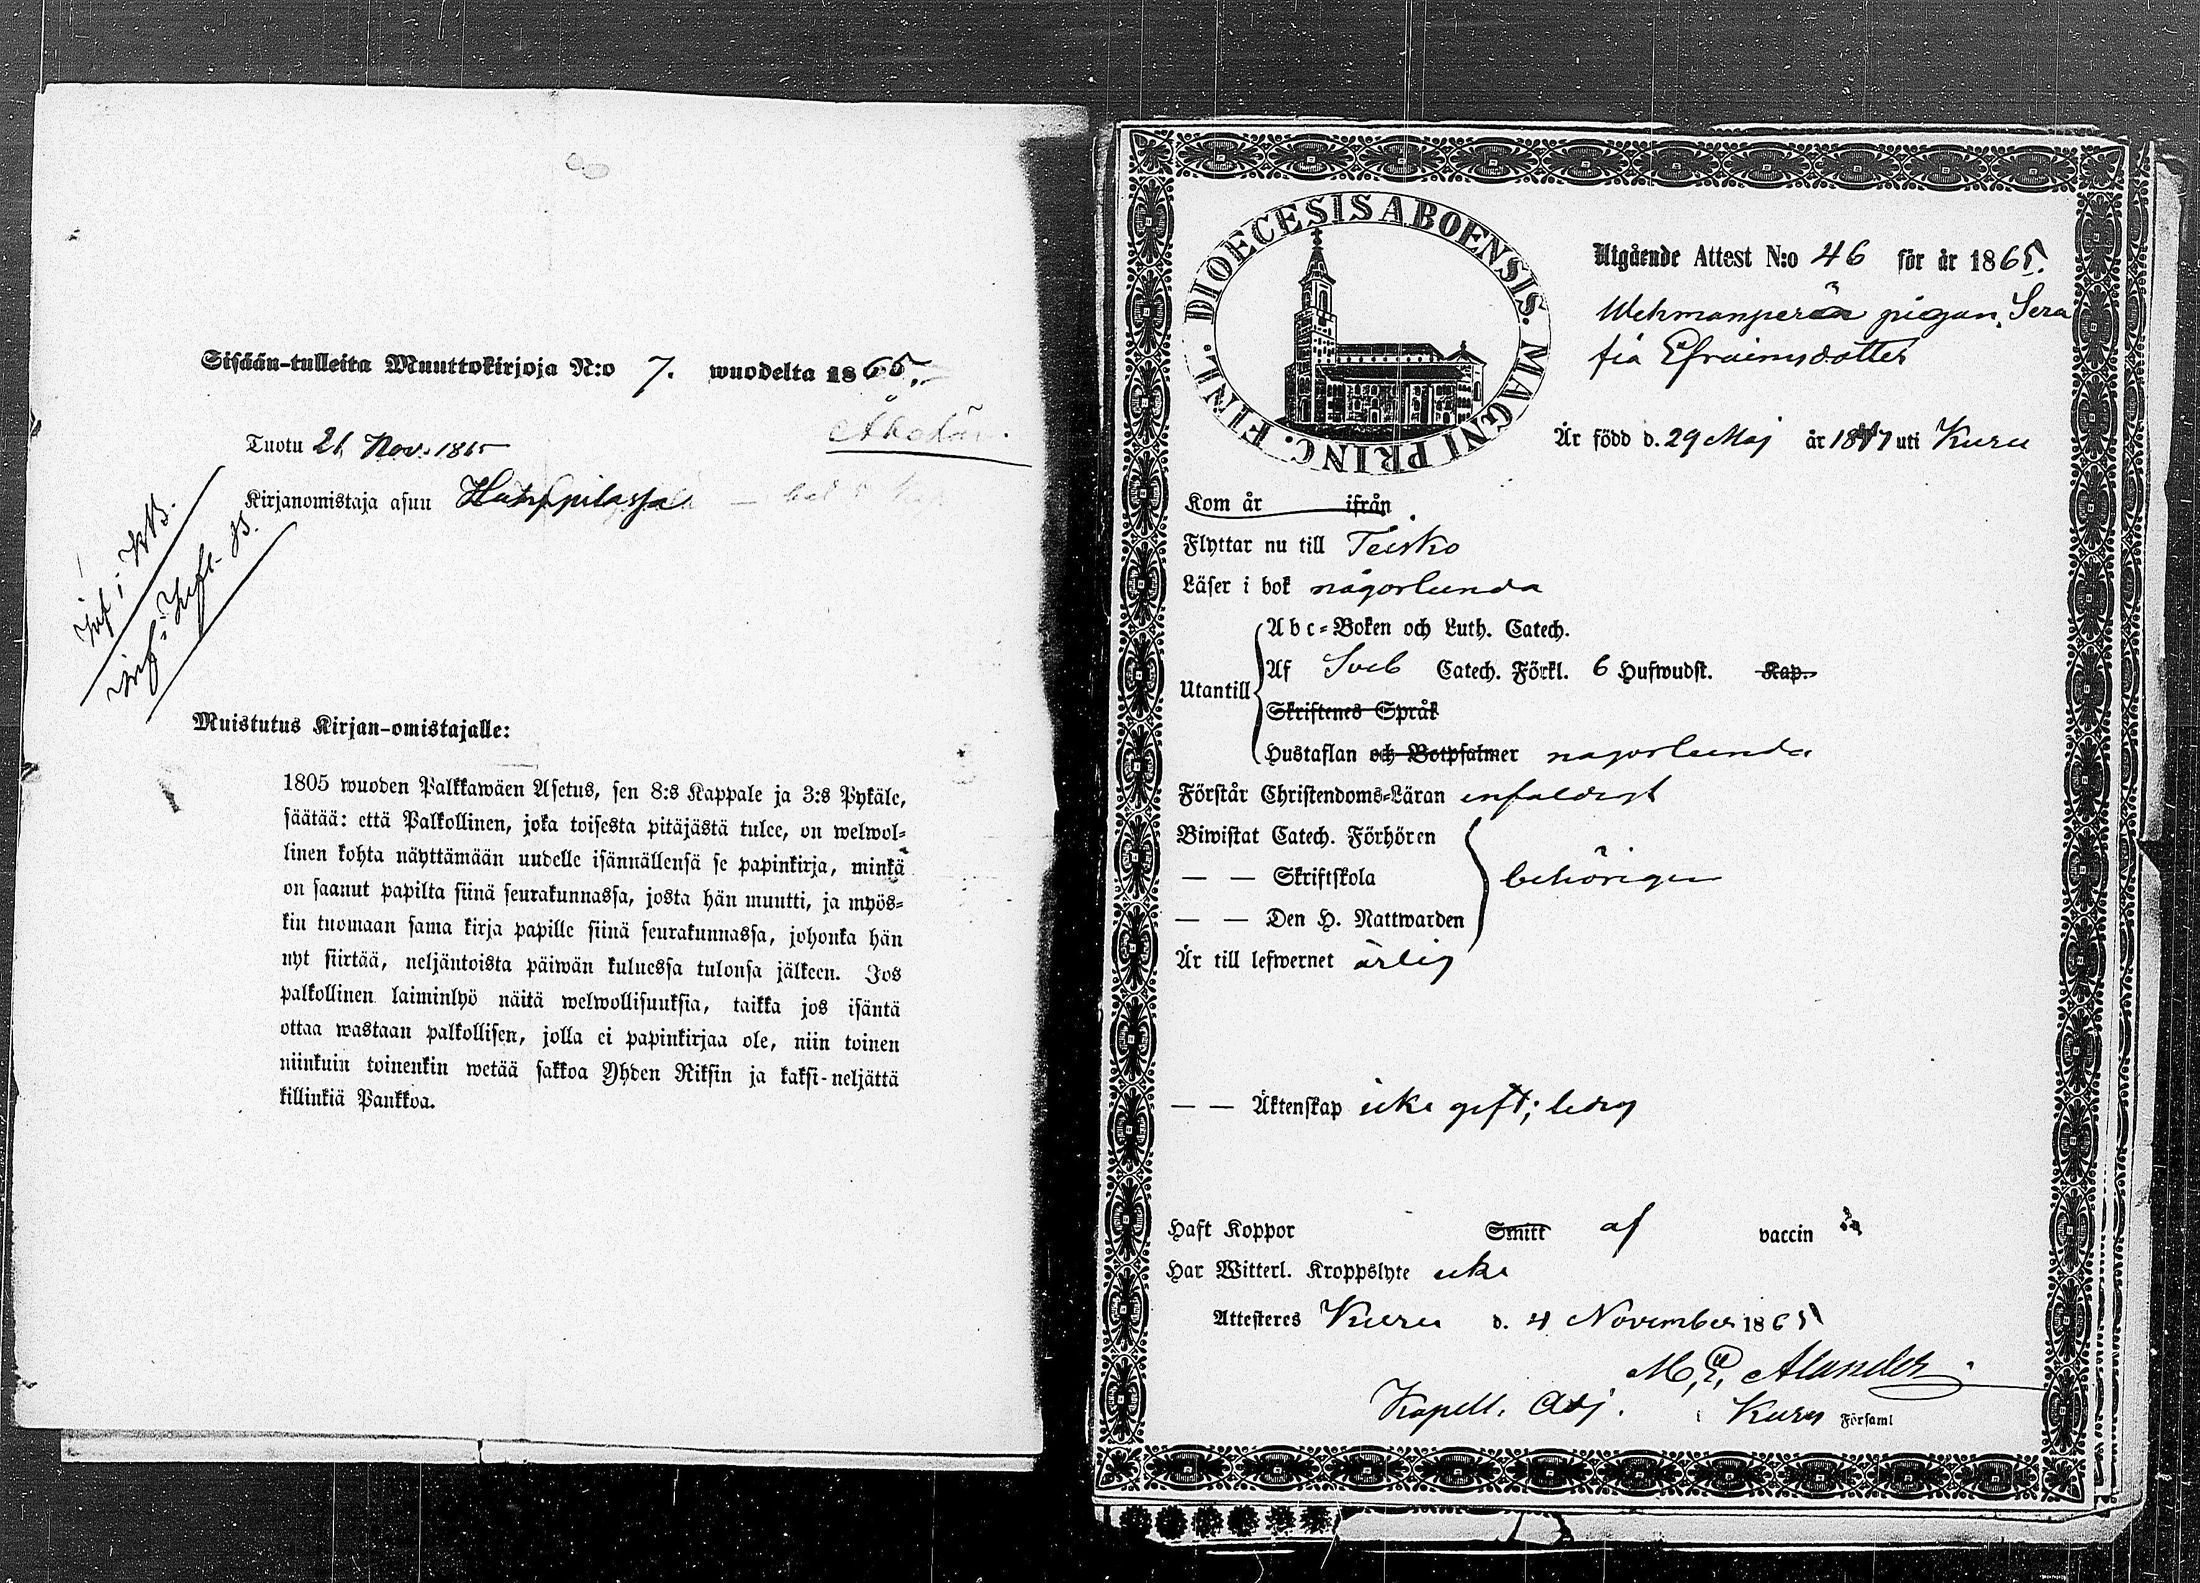 Sisään-tulleita Muuttokirjoja N:o 7. wuodelta 1865.
Tuotu 21 Nov. 1865
Kirjanomistaja asuu
inf. i KB.
inf. i
Muistutus Kirjan-omistajalle:
1805 wuoden Palkkawäen Asetus, sen 8:s Kappale ja 3:s Pykäle,
säätää: että Palkollinen, joka toisesta pitäjästä tulee, on welwol-
linen kohta näyttämään uudelle isännällensä se papinkirja, minkä
on saanut papilta siinä seurakunnassa, josta hän muutti, ja myös-
kin tuomaan sama kirja papille siinä seurakunnassa, johonka hän
nyt siirtää, neljäntoista päiwän kuluessa tulonsa jälkeen. Jos
palkollinen laiminlyö näitä welwollisuuksia, taikka jos isäntä
ottaa wastaan palkollisen, jolla ei papinkirjaa ole, niin toinen
niinkuin toinenkin wetää sakkoa Yhden Riksin ja kaksi-neljättä
killinkiä Pankkoa.
DIOECESIS ABOENSIS. MAGNI PRINC. FINL.
Utgående Attest N:o 46 för år 1865.
Wehmanperä pigan Sera
fia Efraimsdotter
Är född d. 29 Maj år 1847 uti Kuru
Kom år ifrån
Flyttar nu till Teisko
Läser i bok någorlunda
Utantill
Abc-Boken och Luth. Catech.
Af Sveb Catech. Förkl. 6 Hufwudst. Kap.
Skriftenes Språk
Hustaflan och Botpsalmer någorlunda
Förstår Christendoms-Läran enfaldigt
Biwistat Catech. Förhören
— — Skriftskola behörigen
— — Den H. Nattwarden
Är till lefwernet ärlig
— — Äktenskap icke gift; ledig
Haft Koppor Smitt af vaccin
Har Witterl. Kroppslyte icke
Attesteres Kuru d. 4 November 1865
M. E. Alander
Kapell. Adj. i Kuru Församl